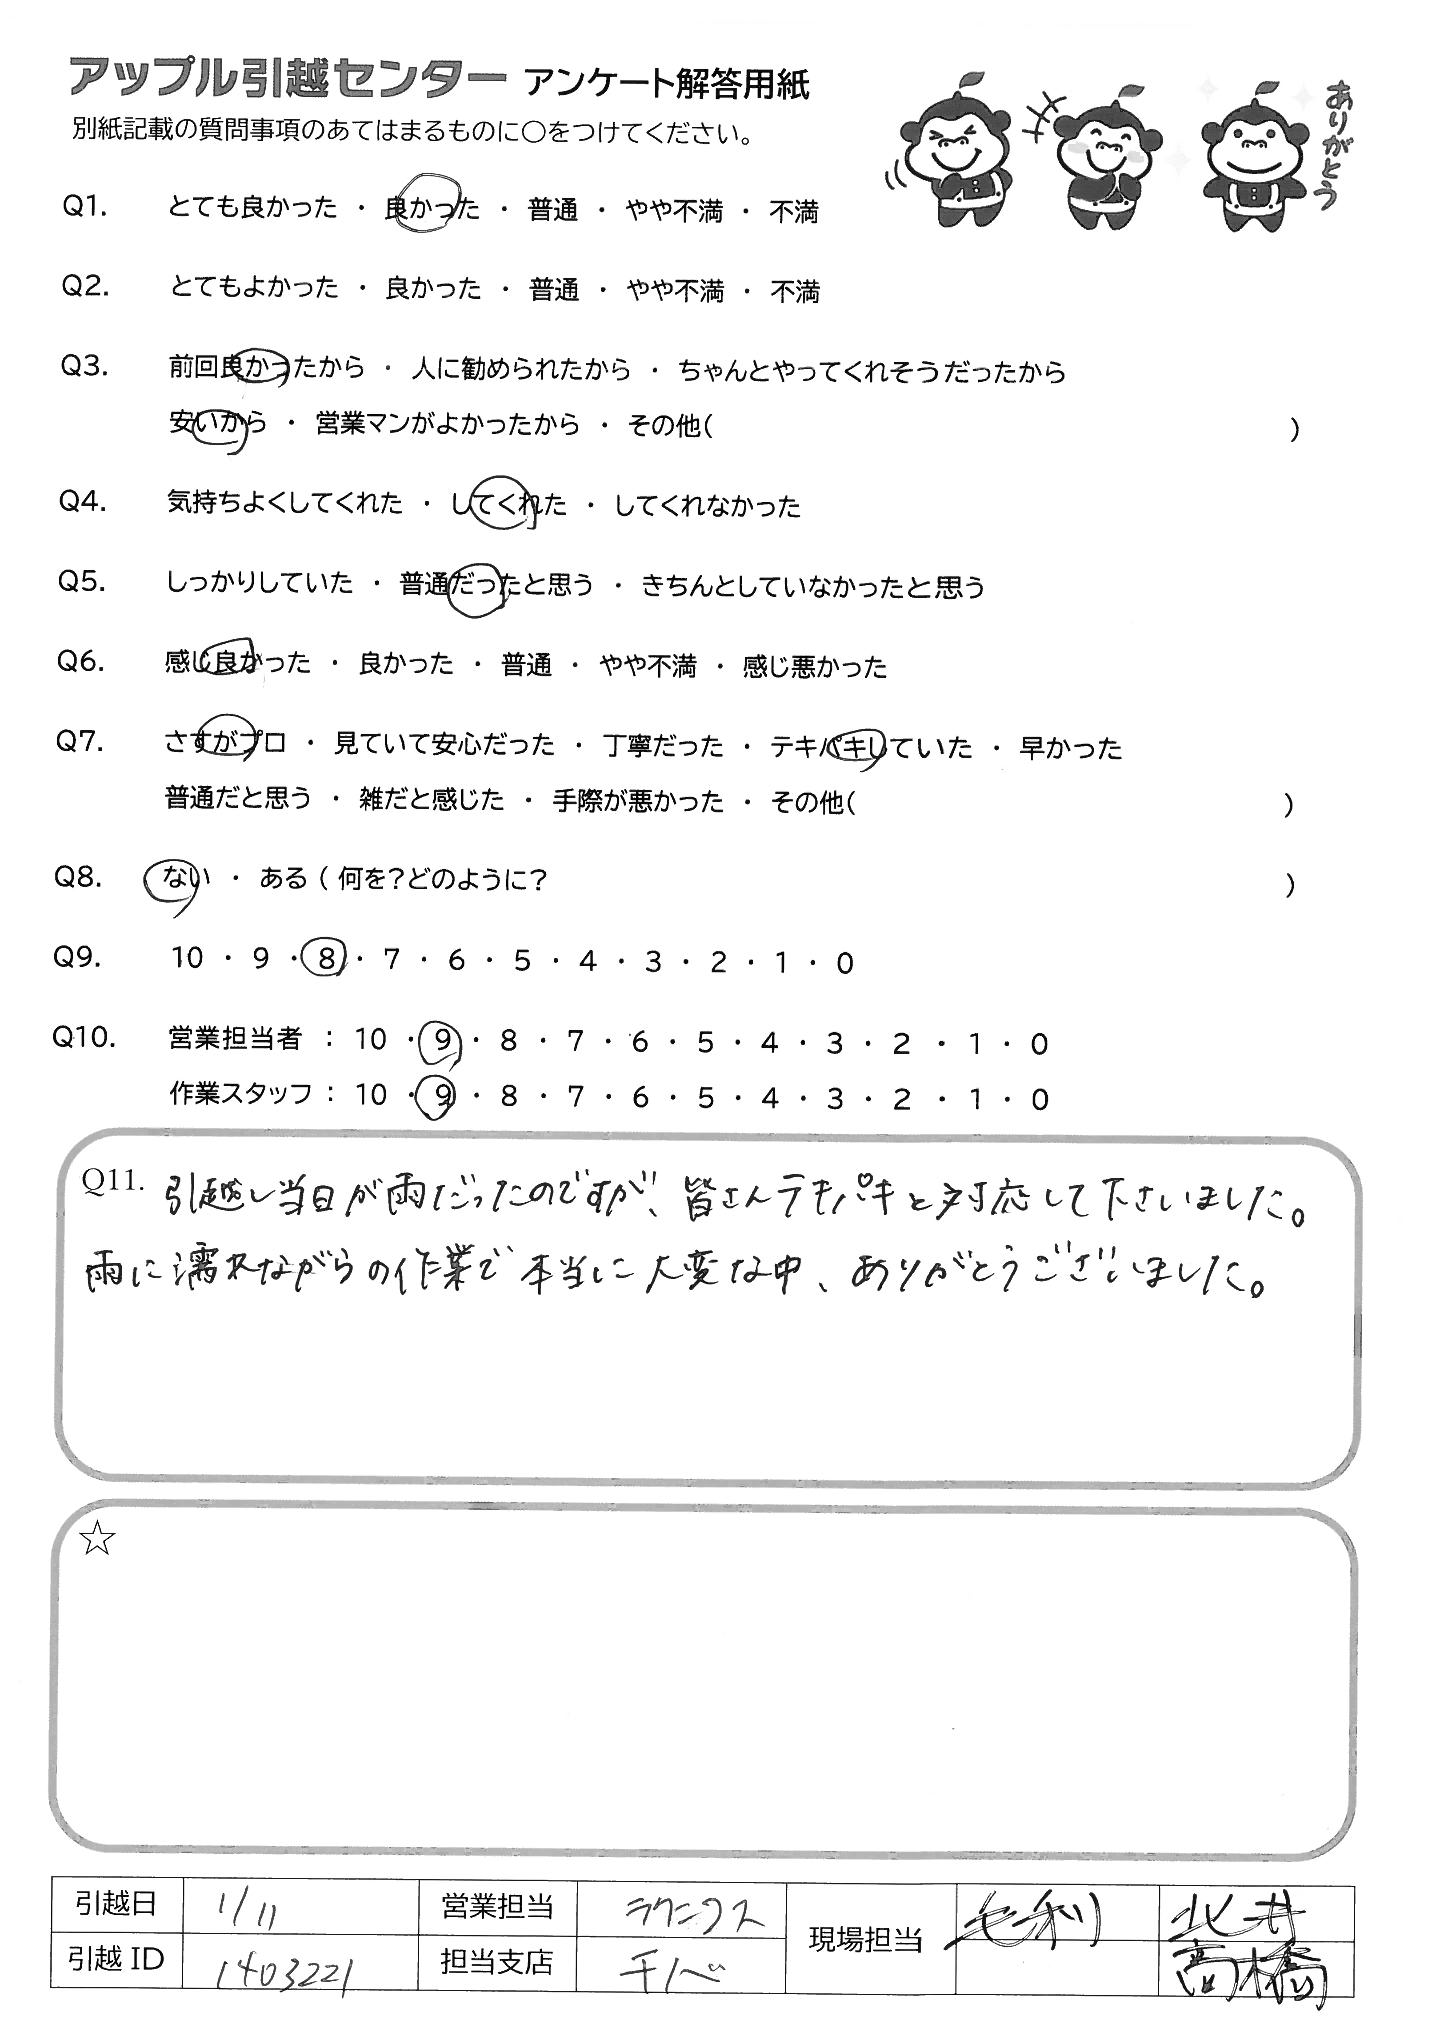 アップル引越センター アンケート解答用紙
別紙記載の質問事項のあてはまるものに○をつけてください。
ありがとう
Q1. とても良かった ・ 良かった ・ 普通 ・ やや不満 ・ 不満
Q2. とてもよかった ・ 良かった ・ 普通 ・ やや不満 ・ 不満
Q3. 前回良かったから ・ 人に勧められたから ・ ちゃんとやってくれそうだったから
安いから ・ 営業マンがよかったから ・ その他( )
Q4. 気持ちよくしてくれた ・ してくれた ・ してくれなかった
Q5. しっかりしていた ・ 普通だったと思う ・ きちんとしていなかったと思う
Q6. 感じ良かった ・ 良かった ・ 普通 ・ やや不満 ・ 感じ悪かった
Q7. さすがプロ ・ 見ていて安心だった ・ 丁寧だった ・ テキパキしていた ・ 早かった
普通だと思う ・ 雑だと感じた ・ 手際が悪かった ・ その他( )
Q8. ない ・ ある ( 何を?どのように? )
Q9. 10 ・ 9 ・ 8 ・ 7 ・ 6 ・ 5 ・ 4 ・ 3 ・ 2 ・ 1 ・ 0
Q10. 営業担当者 : 10 ・ 9 ・ 8 ・ 7 ・ 6 ・ 5 ・ 4 ・ 3 ・ 2 ・ 1 ・ 0
作業スタッフ : 10 ・ 9 ・ 8 ・ 7 ・ 6 ・ 5 ・ 4 ・ 3 ・ 2 ・ 1 ・ 0
Q11. 引越し当日が雨だったのですが、皆さんテキパキと対応して下さいました。
雨に濡れながらの作業で本当に大変な中、ありがとうございました。
☆
引越日 1/11 営業担当 現場担当 毛利 北井
引越ID 1403221 担当支店 千ノベ 高橋